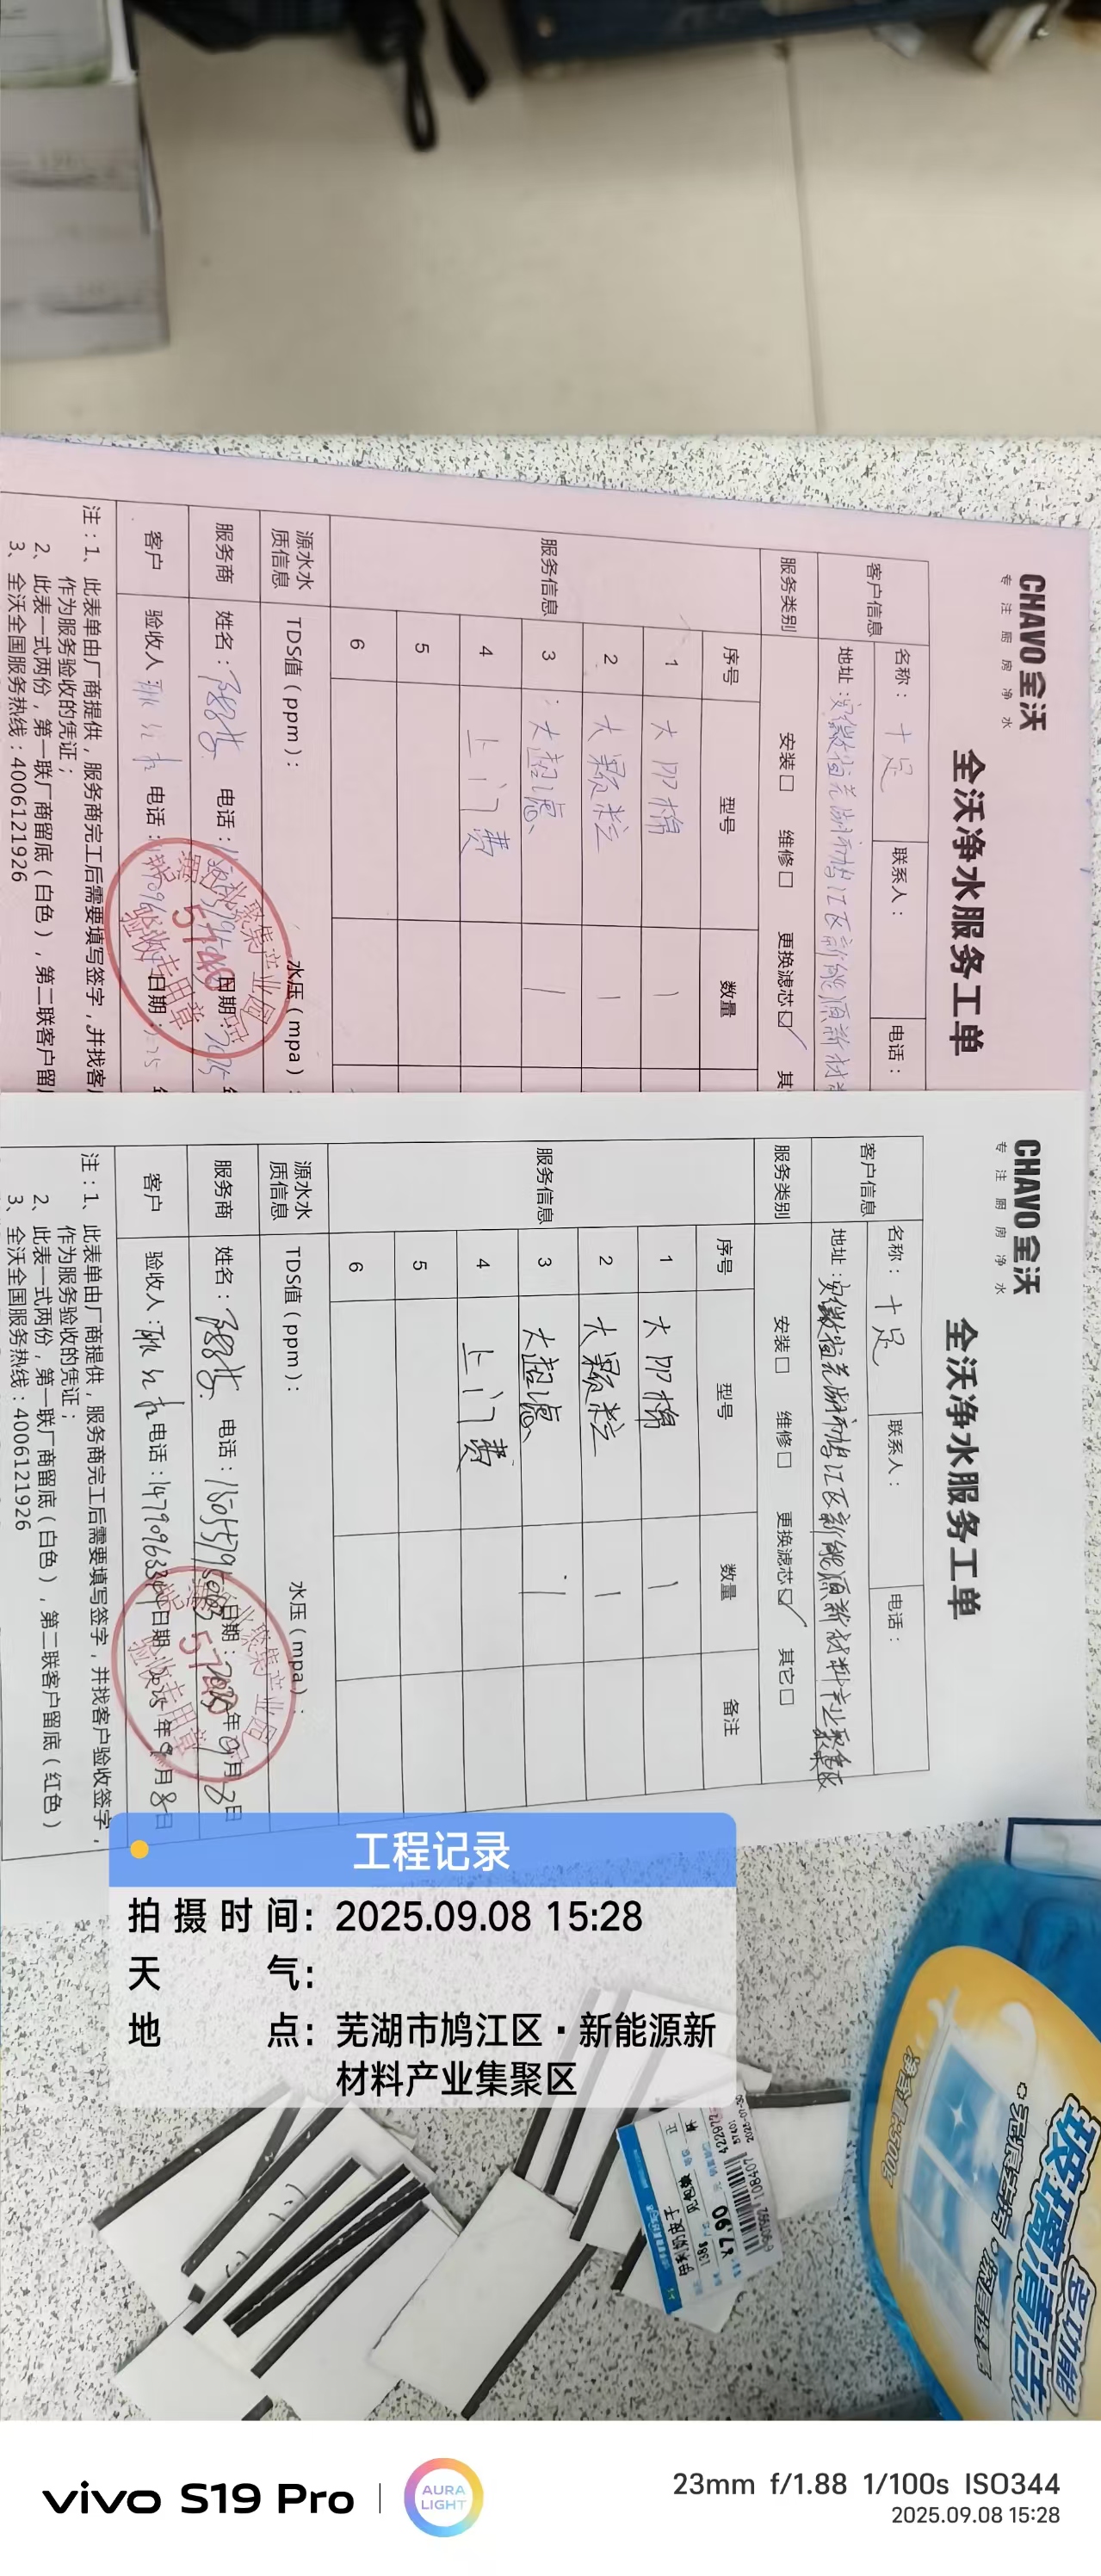 CHAVO全沃
专注厨房净水
全沃净水服务工单
客户信息 名称：十足 联系人： 电话：
地址：安徽省芜湖市鸠江区新能源新材
服务类别 安装□ 维修□ 更换滤芯☑ 其
服务信息 序号 型号 数量
1 大PP棉 1
2 大颗粒 1
3 大超滤 1
4 上门费
5
6
源水水质信息 TDS值（ppm）： 水压（mpa）：
服务商 姓名： 电话： 日期：2025
客户 验收人： 电话： 日期：
芜湖江北聚集产业园店
57440
验收专用章
注：1、此表单由厂商提供，服务商完工后需要填写签字，并找客
作为服务验收的凭证；
2、此表一式两份，第一联厂商留底（白色），第二联客户留
3、全沃全国服务热线：4006121926
CHAVO全沃
专注厨房净水
全沃净水服务工单
客户信息 名称：十足 联系人： 电话：
地址：安徽省芜湖市鸠江区新能源新材料产业聚集区
服务类别 安装□ 维修□ 更换滤芯☑ 其它□
服务信息 序号 型号 数量 备注
1 大PP棉 1
2 大颗粒 1
3 大超滤 1
4 上门费
5
6
源水水质信息 TDS值（ppm）： 水压（mpa）：
服务商 姓名： 电话： 日期：2025年9月8日
客户 验收人： 电话： 日期：2025年9月8日
验收专用章
注：1、此表单由厂商提供，服务商完工后需要填写签字，并找客户验收签字，
作为服务验收的凭证；
2、此表一式两份，第一联厂商留底（白色），第二联客户留底（红色）
3、全沃全国服务热线：4006121926
工程记录
拍摄时间：2025.09.08 15:28
天气：
地点：芜湖市鸠江区·新能源新
材料产业集聚区
净含量:500g
玻璃清洁
多功能
7.90
vivo S19 Pro
AURA
LIGHT
23mm f/1.88 1/100s ISO344
2025.09.08 15:28